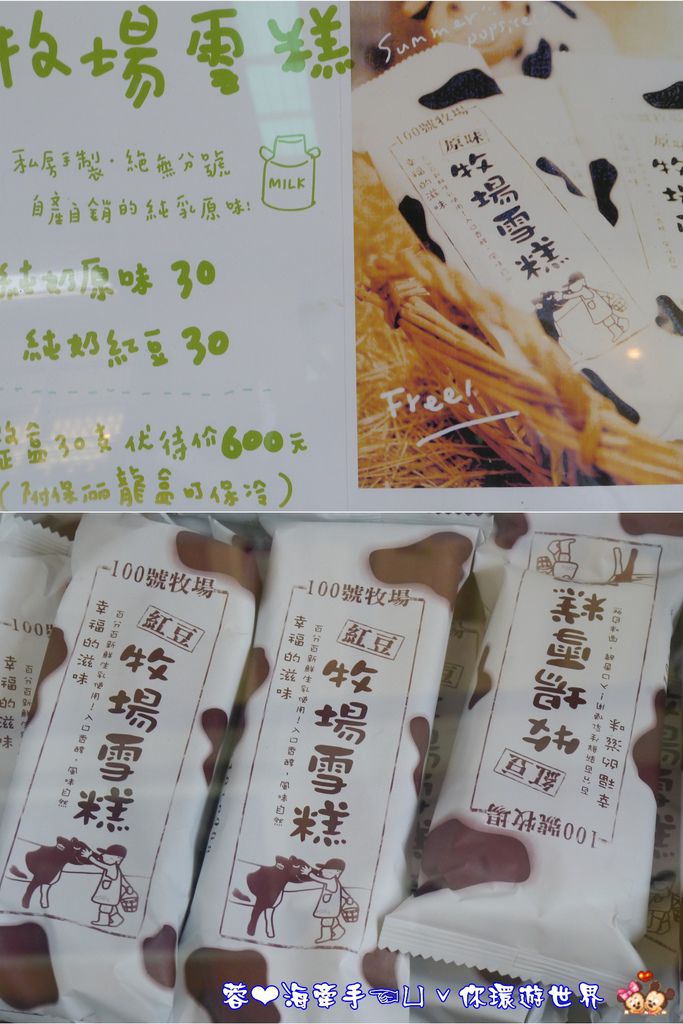 牧場雪糕
私房手製·絕無分號
自產自銷的純乳原味!
MILK
純奶原味 30
純奶紅豆 30
盒30支 优待价600元
(附保丽龍盒可保冷)
Summer
popsicle!
100號牧場
原味
牧場雪糕
幸福的滋味
原味
Free!
100號牧場
紅豆
牧場雪糕
百分百新鮮生乳使用!入口香醇,風味自然
幸福的滋味
100號牧場
紅豆
牧場雪糕
百分百新鮮生乳使用!入口香醇,風味自然
幸福的滋味
100號牧場
紅豆
牧場雪糕
幸福的滋味
幸福的滋味
蓉❤海牽手☜凵v你環遊世界